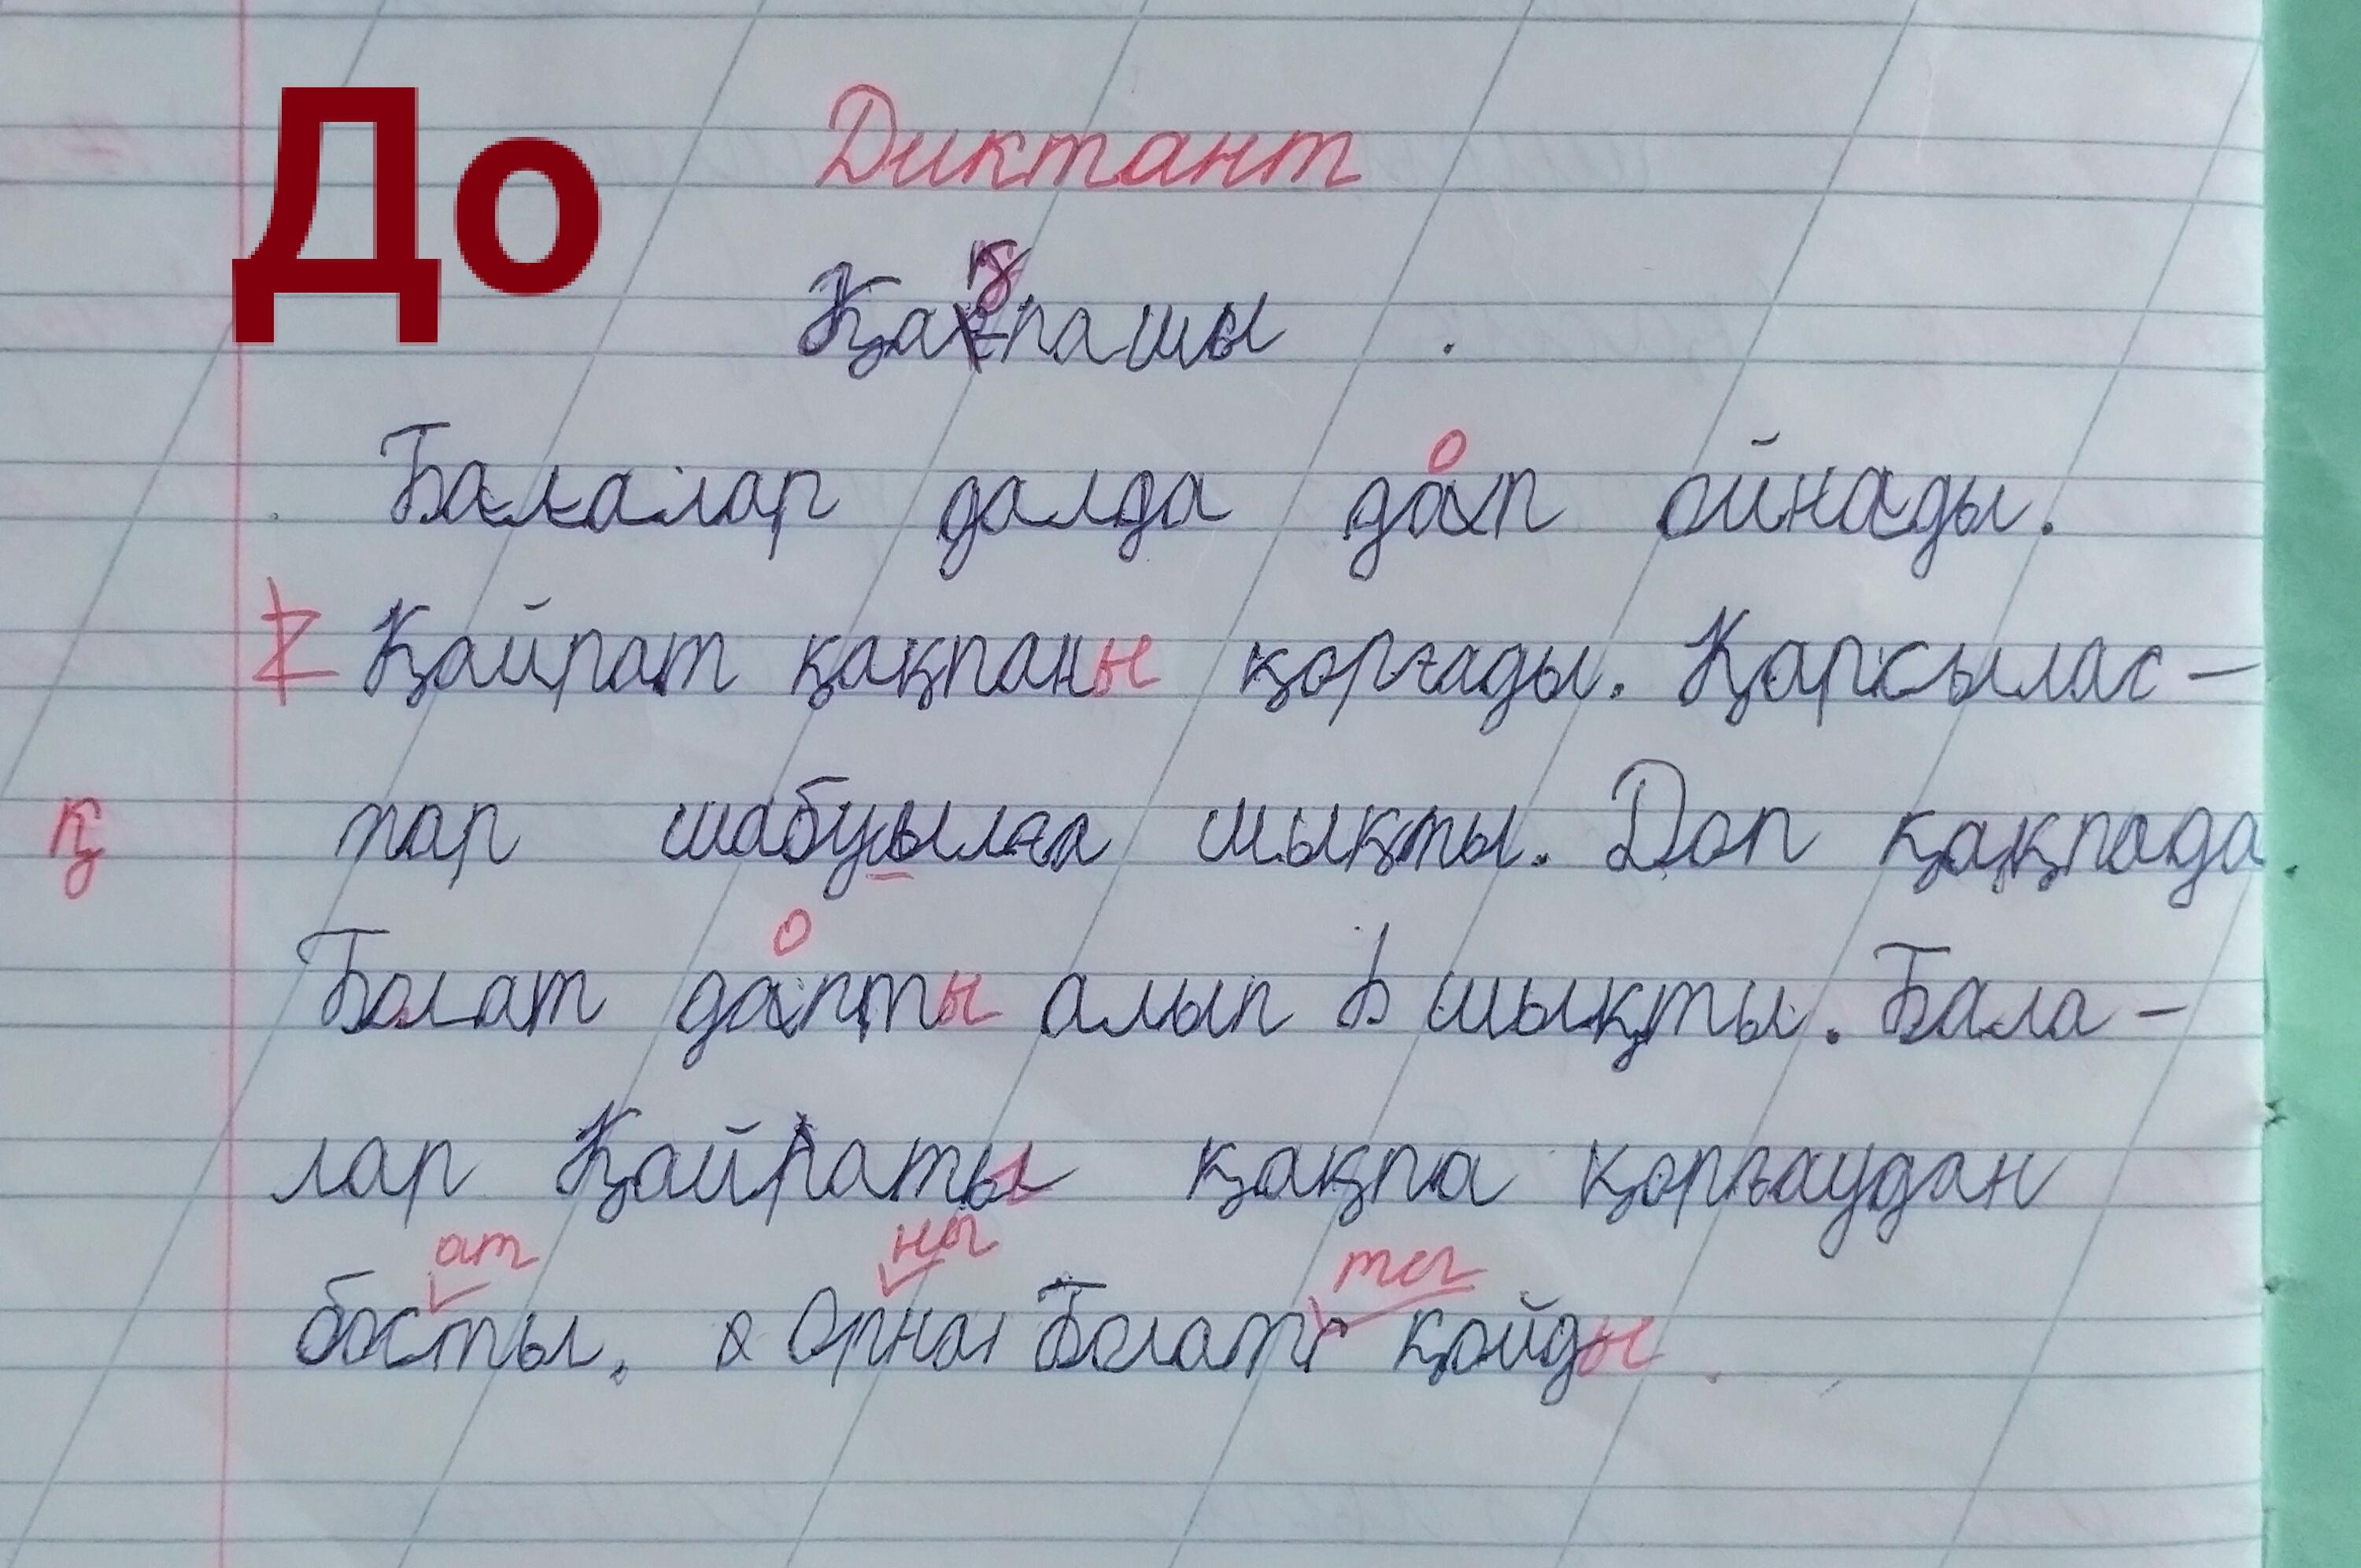 До
Диктант
Қақпашы
Балалар далда доп ойнады.
Z Қайрат қақпаны қорғады. Қарсылас-
қ тар шабуылға шықты. Доп қақпада.
о
Болат допты алып шықты. Бала-
лар Қайраты қақпа қорғаудан
ат ны ты
босты. Орны Болат қойды.